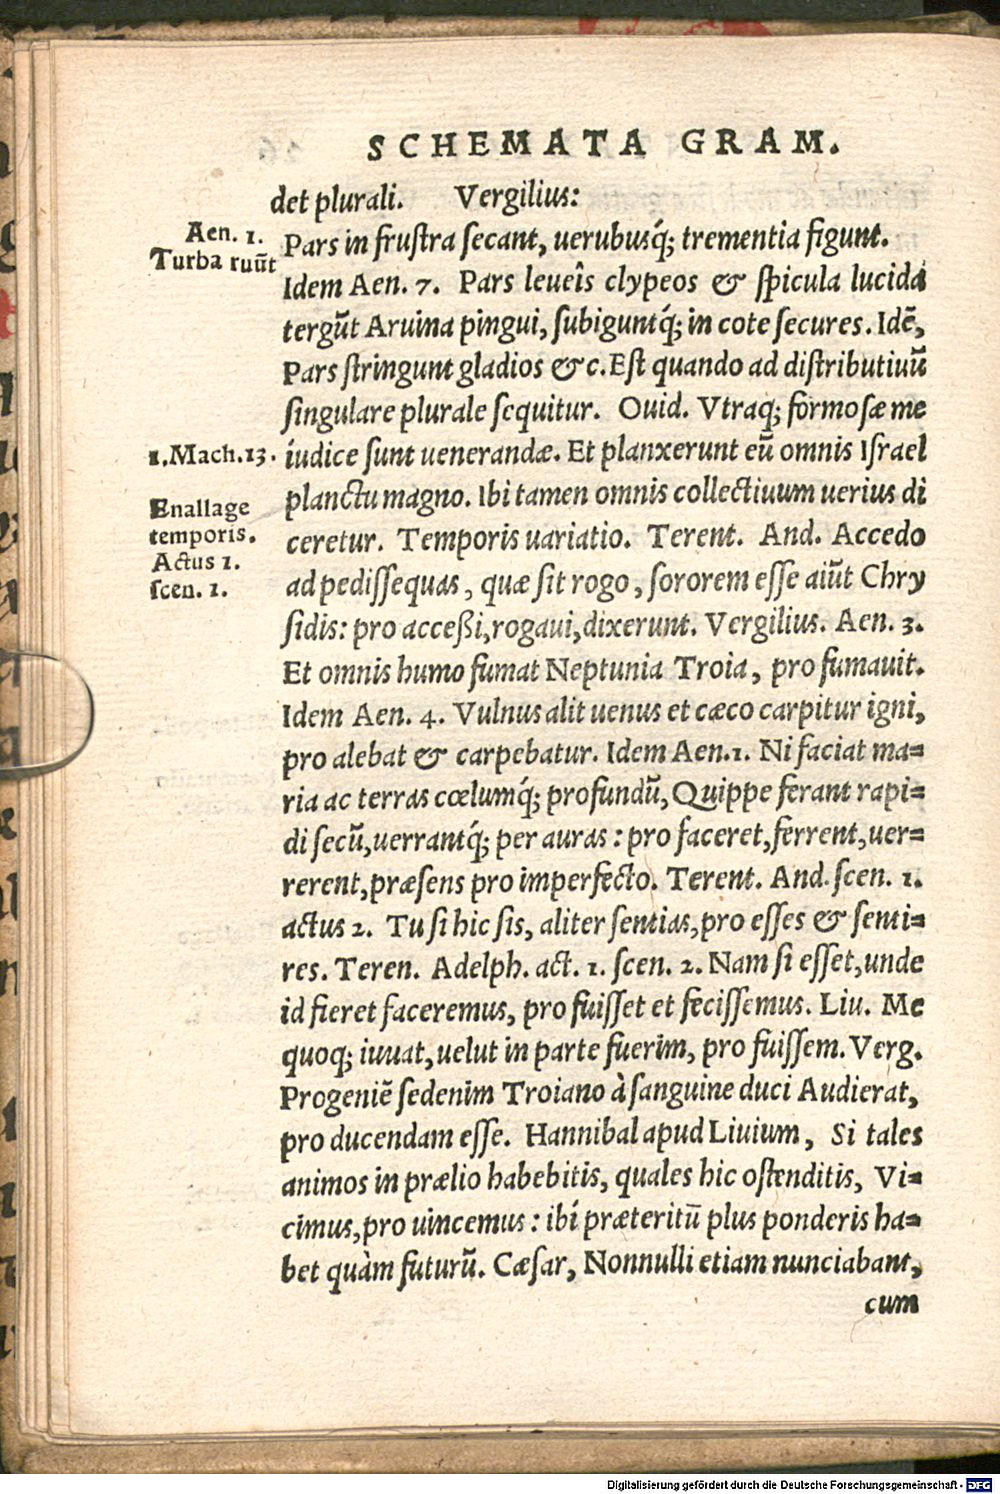 SCHEMATA GRAM.
det plurali. Vergilius:
Aen. 1.
Turba ruūt
Pars in frustra secant, uerubusq́; trementia figunt.
Idem Aen. 7. Pars leueîs clypeos & spicula lucida
tergūt Aruina pingui, subiguntq́; in cote secures. Idē,
Pars stringunt gladios & c. Est quando ad distributiuū
singulare plurale sequitur. Ouid. Vtraq; formosæ me
1.Mach.13.
iudice sunt uenerandæ. Et planxerunt eū omnis Israel
planctu magno. Ibi tamen omnis collectiuum uerius di
Enallage
temporis.
Actus 1.
scen. 1.
ceretur. Temporis uariatio. Terent. And. Accedo
ad pedissequas, quæ sit rogo, sororem esse aiūt Chry
sidis: pro accessi, rogaui, dixerunt. Vergilius. Aen. 3.
Et omnis humo fumat Neptunia Troia, pro fumauit.
Idem Aen. 4. Vulnus alit uenus et cæco carpitur igni,
pro alebat & carpebatur. Idem Aen. 1. Ni faciat ma=
ria ac terras cœlumq́; profundū, Quippe ferant rapi=
di secū, uerrantq́; per auras: pro faceret, ferrent, uer=
rerent, præsens pro imperfecto. Terent. And. scen. 1.
actus 2. Tu si hic sis, aliter sentias, pro esses & senti=
res. Teren. Adelph. act. 1. scen. 2. Nam si esset, unde
id fieret faceremus, pro fuisset et fecissemus. Liu. Me
quoq; iuuat, uelut in parte fuerim, pro fuissem. Verg.
Progeniē sedenim Troiano à sanguine duci Audierat,
pro ducendam esse. Hannibal apud Liuium, Si tales
animos in prælio habebitis, quales hic ostenditis, Vi=
cimus, pro uincemus: ibi præteritū plus ponderis ha=
bet quàm futurū. Cæsar, Nonnulli etiam nunciabant,
cum
Digitalisierung gefördert durch die Deutsche Forschungsgemeinschaft - DFG